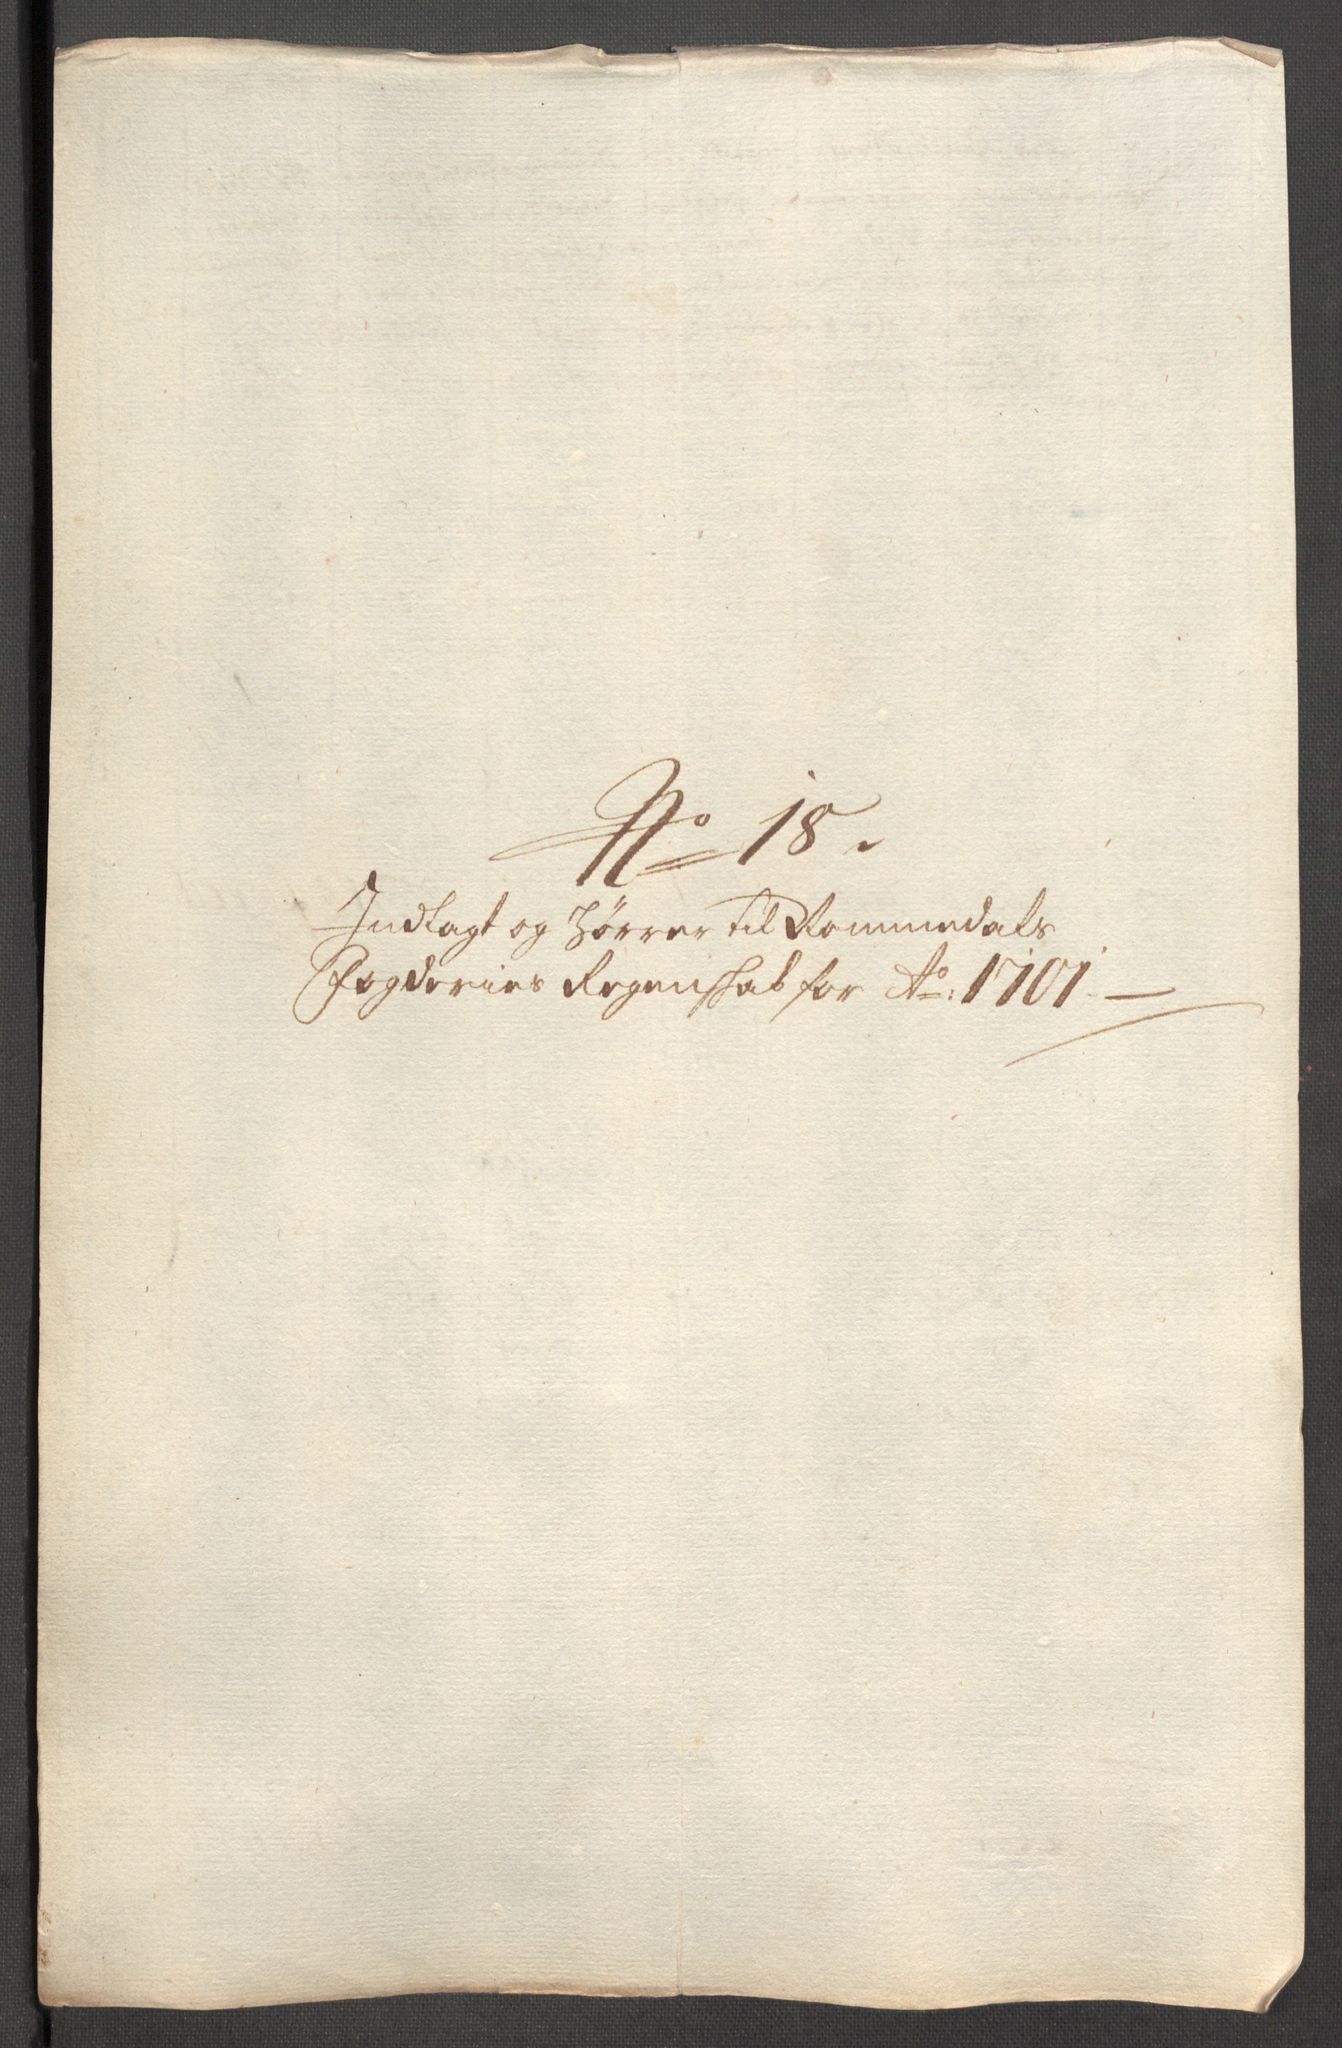 No 18.
Indlagt og hörrer til Rommedals
Fogderies Regenskab for Ao: 1701